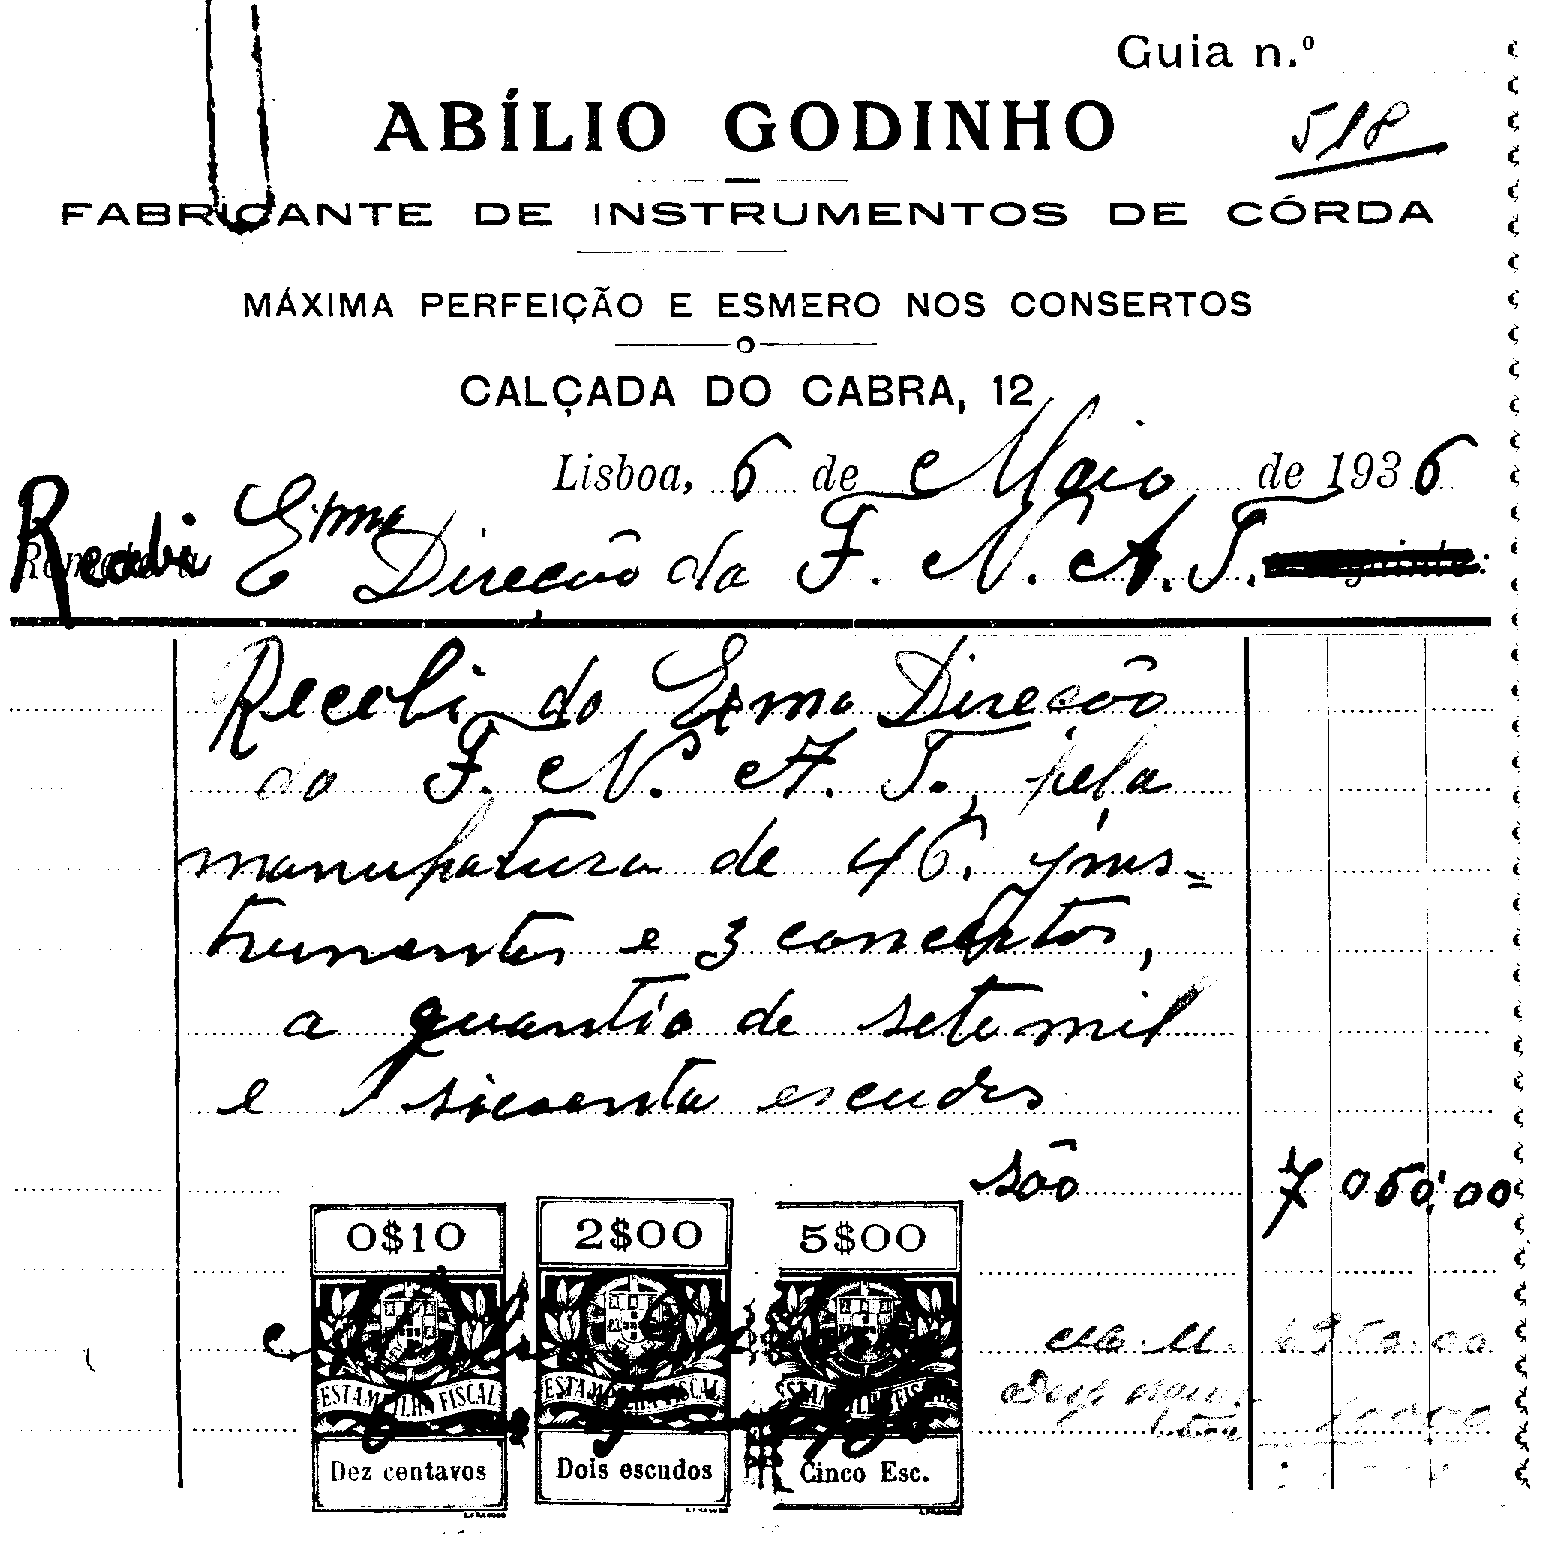 Guia n.º
ABÍLIO GODINHO
518
FABRICANTE DE INSTRUMENTOS DE CÓRDA
MÁXIMA PERFEIÇÃO E ESMERO NOS CONSERTOS
CALÇADA DO CABRA, 12
Lisboa, 6 de Maio de 1936
Recebi Exma Direcção da F. N. A. T.
Recebi da Exma Direcão
da F. N. A. T., pela
manufatura de 46. yns=
trumentos e 3 concertos,
a quantia de sete mil
e sicoenta escudos
são 7 050:00
0$10 2$00 5$00
ESTAMPILHA FISCAL ESTAMPILHA FISCAL ESTAMPILHA FISCAL
Dez centavos Dois escudos Cinco Esc.